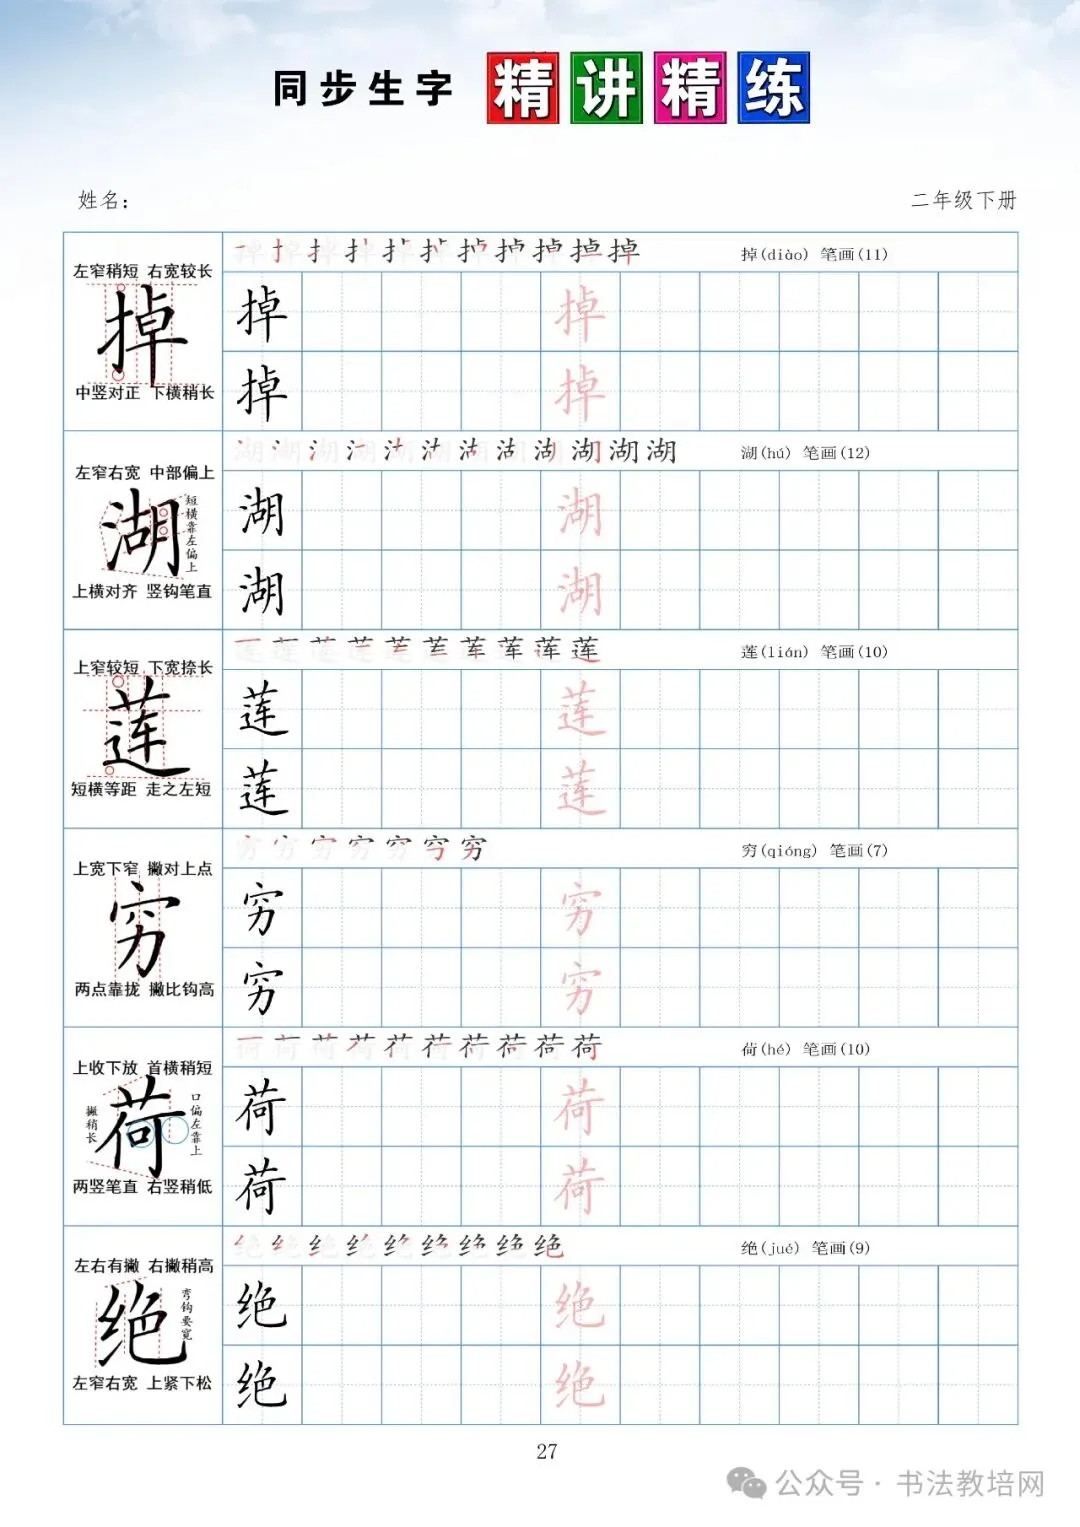 同步生字 精讲精练
姓名：
二年级下册
左窄稍短 右宽较长
掉
中竖对正 下横稍长
掉(diào) 笔画(11)
掉 掉
掉 掉
左窄右宽 中部偏上
湖
短横靠左偏上
上横对齐 竖钩笔直
湖(hú) 笔画(12)
湖 湖
湖 湖
上窄较短 下宽捺长
莲
短横等距 走之左短
莲(lián) 笔画(10)
莲 莲
莲 莲
上宽下窄 撇对上点
穷
两点靠拢 撇比钩高
穷(qióng) 笔画(7)
穷 穷
穷 穷
上收下放 首横稍短
撇稍长
荷
口偏左靠上
两竖笔直 右竖稍低
荷(hé) 笔画(10)
荷 荷
荷 荷
左右有撇 右撇稍高
绝
弯钩要宽
左窄右宽 上紧下松
绝(jué) 笔画(9)
绝 绝
绝 绝
27
公众号·书法教培网